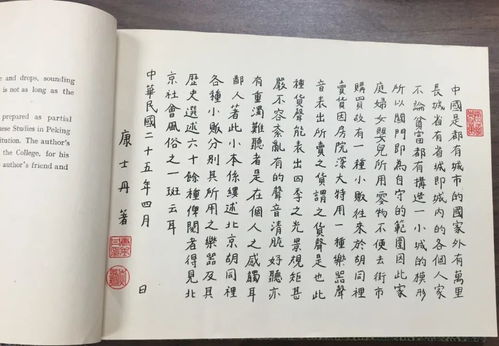 e and drops, sounding
is not as long as the
prepared as partial
ese Studies in Peking
itution. The author's
the College, for his
author's friend and
中國是都有城市的國家外有萬里
長城省有省城即城內的各個人家
不論貧富都有構造一小城的模形
所以關門即為自守的範圍因此家
庭婦女嬰兒所用零物不便去街市
購買故有一種小販往來於胡同裡
賣貨因房院深大特用一種樂器聲
音表出所賣之貨謂之貨聲是也此
種貨聲能表出四季之光景規矩甚
嚴不容紊亂有的聲音清脆好聽亦
有重濁難聽者是在個人之感觸耳
鄙人著此小本係縷述北京胡同裡
各種小販分別其所用之樂器及其
歷史選六十餘種俾閱者得見北
京社會風俗之一班云耳
中華民國二十五年四月 日
康士丹 著